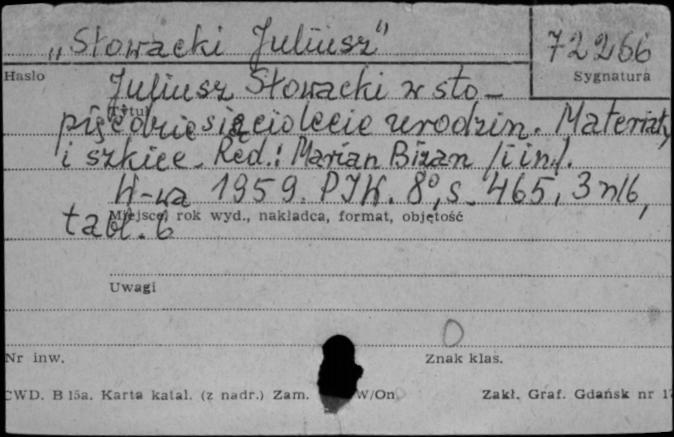 „Słowacki Juliusz"
72266
Hasło
Sygnatura
Juliusz Słowacki w sto-
Tytuł
pięćdziesięciolecie urodzin. Materiały
i szkice. Red.: Marian Bizan /i in./.
W-wa 1959. PIW. 8°, s. 465, 3 nlb,
Miejsce, rok wyd., nakładca, format, objętość
tabl. 6
Uwagi
Nr inw.
Znak klas.
CWD. B 15a. Karta katal. (z nadr.) Zam. W/On
Zakł. Graf. Gdańsk nr